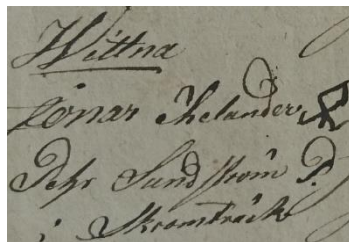 Wittna
Jonas Thelander
Pehr Sundström P.
i Skromträsk